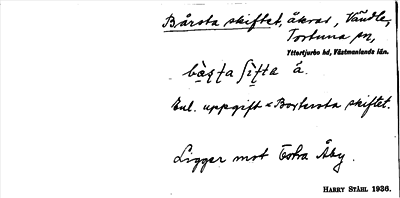 Bårsta skiftet, åkrar, Vändle,
Tortuna sn,
Yttertjurbo hd, Västmanlands län.
bɑ̀ʂʈa ʃìfta å.
Enl. uppgift < Boxtersta skiftet.
Ligger mot Östra Åby.
HARRY STÅHL 1936.